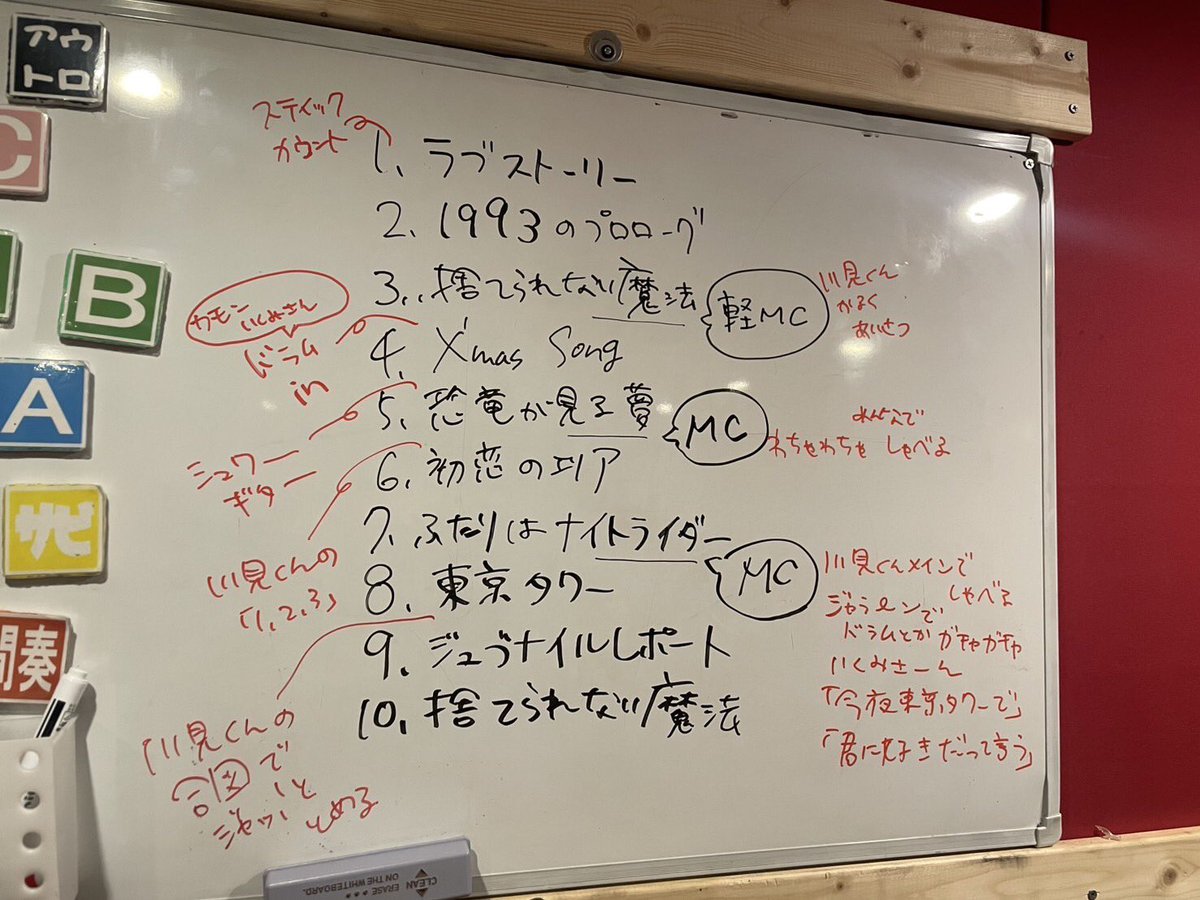 アウ
トロ
C
B
A
サビ
間奏
スティック
カウント
1. ラブストーリー
2. 1993のプロローグ
3. 捨てられない魔法
軽MC
川見くん
かるく
あいさつ
カモン
いくみさん
ドラム
in
4. X'mas Song
5. 恐竜が見る夢
MC
わちゃわちゃ しゃべる
シュワー
ギター
6. 初恋のエリア
7. ふたりはナイトライダー
MC
川見くんメインで
しゃべる
ジャラーンで
ドラムとかガチャガチャ
いくみさーん
「今夜東京タワーで」
「君に好きだって言う」
川見くんの
「1,2,3」
8. 東京タワー
9. ジュブナイルレポート
10. 捨てられない魔法
川見くんの
合図で
とめる
CLEAN ERASE
ON THE WHITEBOARD.